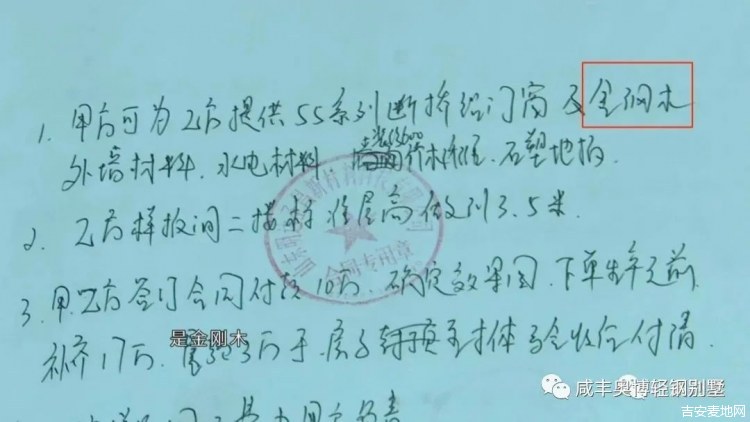 1. 甲方可为乙方提供55系列断桥铝门窗及金钢木
外墙材料.水电材料 竹木纤维.石塑地板.
2. 乙方样板间二楼标准层高做到3.5米.
合同专用章
3. 甲.乙方签订合同付款10万.确定效果图.下单生产之前
补齐17万. 3万于.房子 主体验收后付清.
是金刚木
咸丰奥博轻钢别墅
吉安麦地网